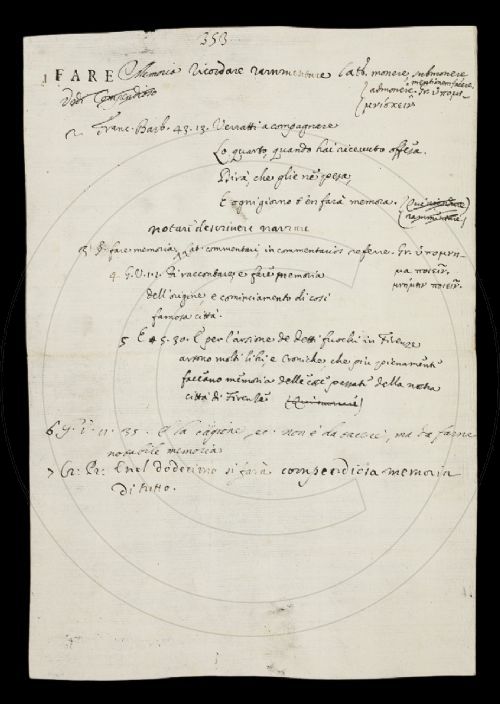 353
1 FARE Memoria Ricordare rammentare Lat. monere, submonere
mentionem facere,
admonere. Gr. ὑπομι-
μνήσκειν
Vedi Compendioso
2. Franc. Barb. 43. 13. Verratti a compagnere
Lo quarto, quando hai ricevuto offesa.
Dirà, che gli è 'n pesa,
E ogni giorno ò en farà memora. (Qui ricordare
rammentare)
notari descrivere narrare
3. §. fare memoria, Lat. commentari, in commentarios referre. Gr. ὑπομνη-
4. G. V. 1. 2. Di raccontare e fare memoria
μα ποιεῖν.
μνήμην ποιεῖν.
dell'origine, e cominciamento di così
famosa città.
5 E 4. 30. E per l'arsione de' detti fuochi in Firenze
arsono molti libri, e Croniche, che più pienamente
facevano memoria delle cose passate della nostra
città di Firenze
6 11. 35. E la cagione, ec. non è da tacere, ma da farne
notabile memoria
7 Cr. Pr. E nel dodecimo si farà compendiosa memoria
di tutto.